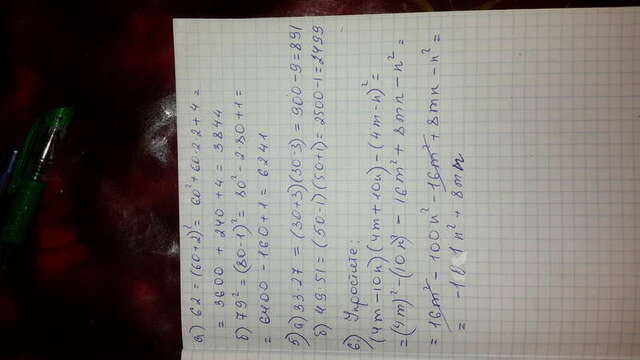 а) 62 = (60+2)² = 60² + 60·2·2 + 4 =
= 3600 + 240 + 4 = 3844
б) 79² = (80-1)² = 80² - 2·80 + 1 =
= 6400 - 160 + 1 = 6241
5) а) 33·27 = (30+3)(30-3) = 900 - 9 = 891
б) 49·51 = (50-1)(50+1) = 2500 - 1 = 2499
6) Упростите:
(4m-10n)(4m+10n) - (4m-n)² =
= (4m)² - (10n)² - 16m² + 8mn - n² =
= 16m² - 100n² - 16m² + 8mn - n² =
= -101n² + 8mn